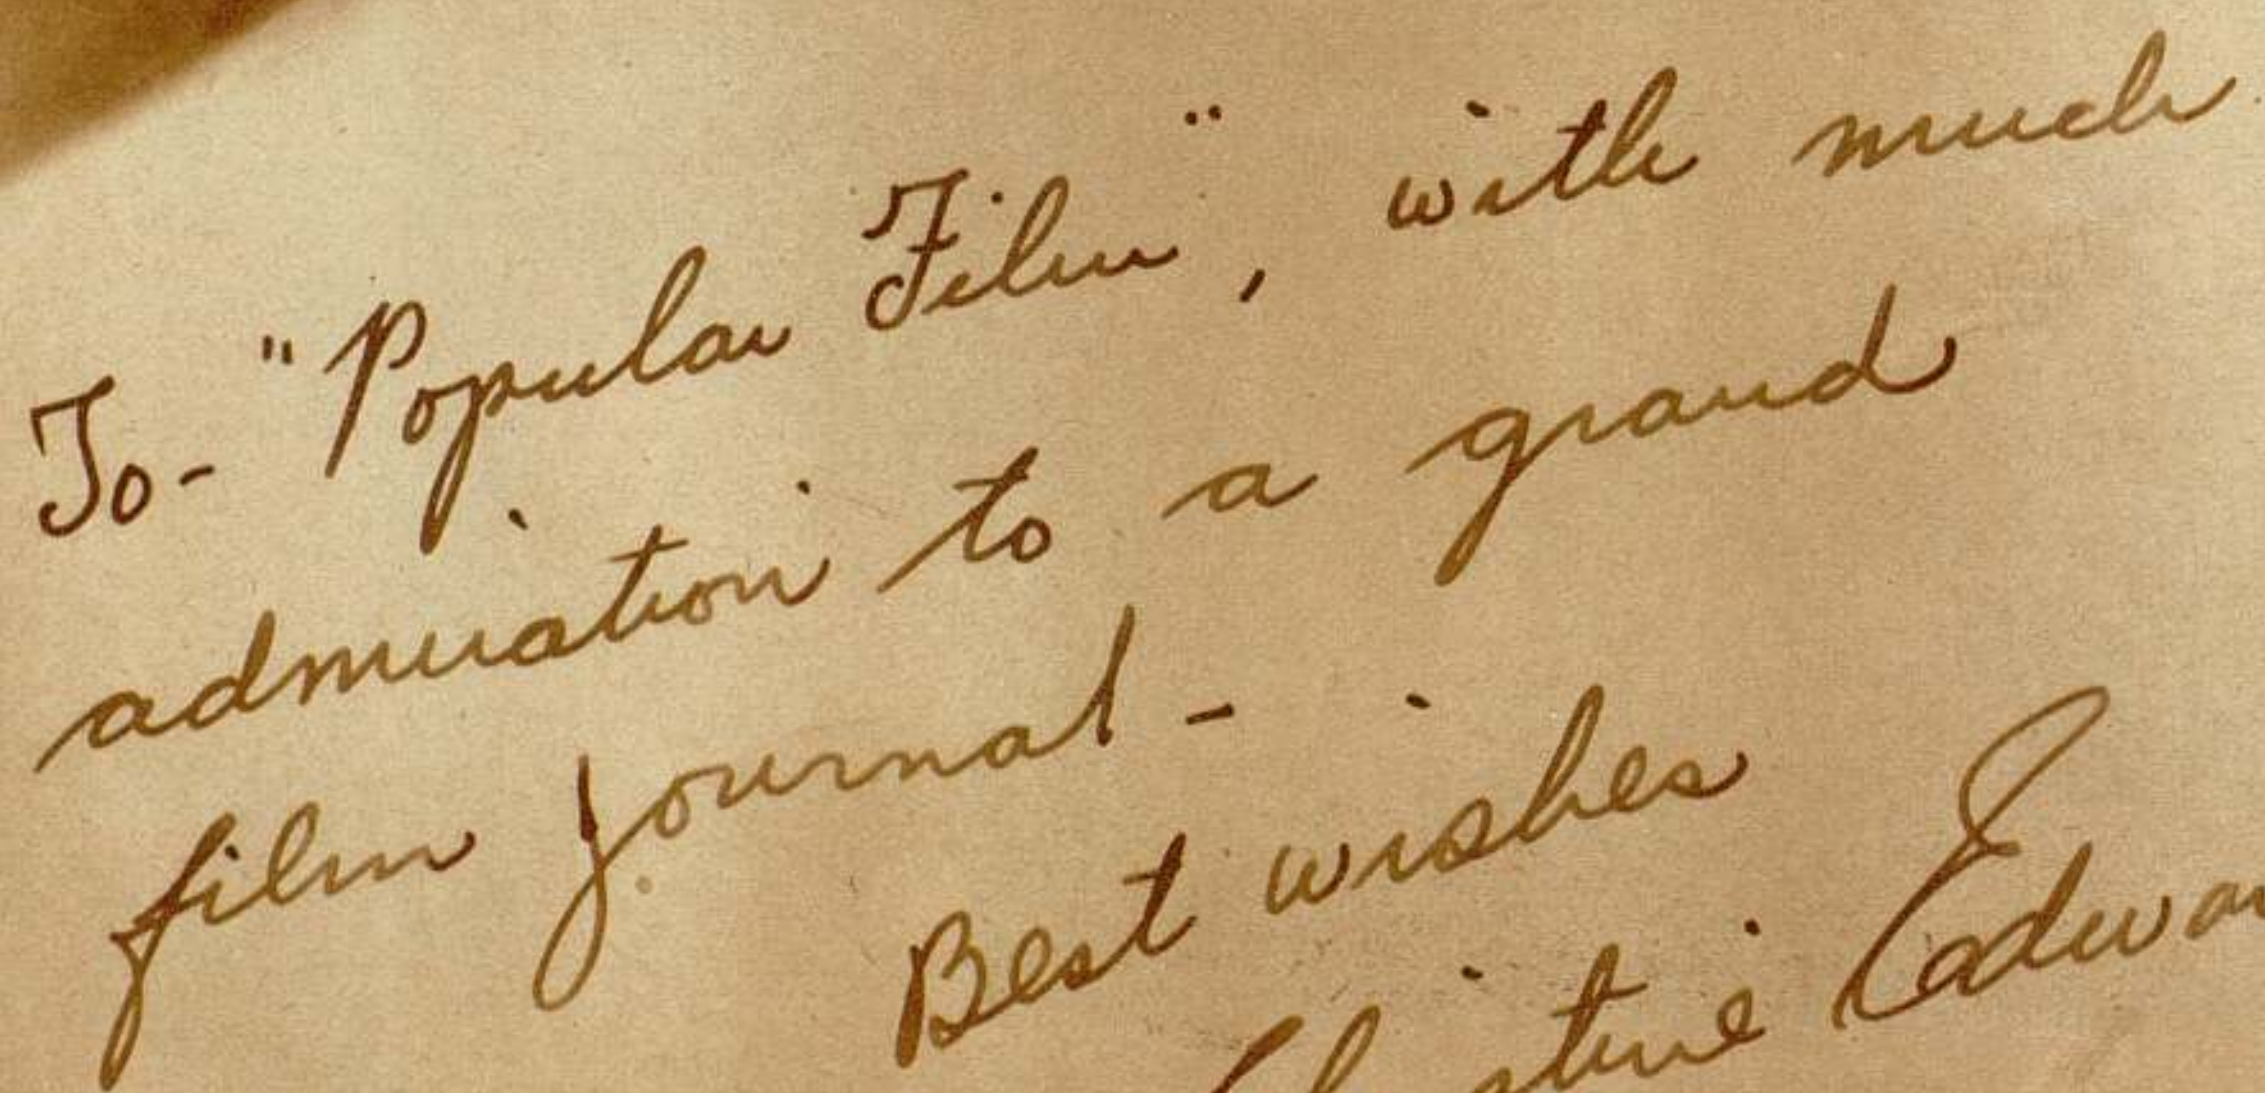 To- "Popular Film", with much
admiration to a grand
film journal -
Best wishes